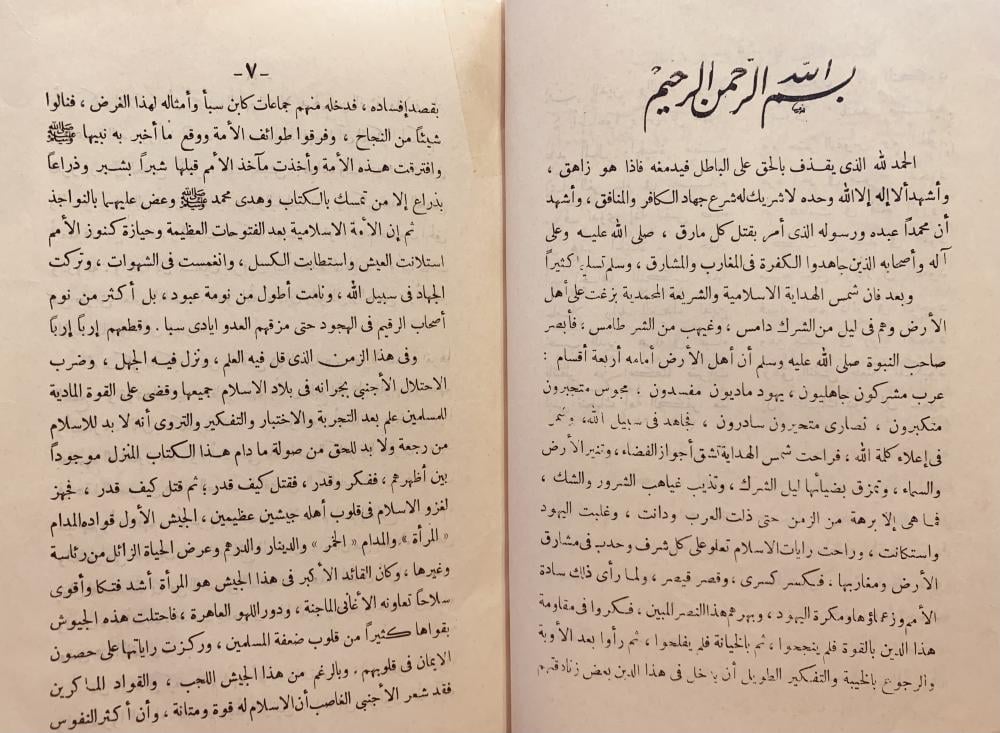 بسم الله الرحمن الرحيم
الحمد لله الذى يقذف بالحق على الباطل فيدمغه فاذا هو زاهق ،
وأشهد ألا إله إلا الله وحده لا شريك له شرع جهاد الكافر والمنافق ، وأشهد
أن محمداً عبده ورسوله الذى أمر بقتل كل مارق ، صلى الله عليه وعلى
آله وأصحابه الذين جاهدوا الكفرة فى المغارب والمشارق ، وسلم تسليما كثيراً
وبعد فان شمس الهداية الاسلامية والشريعة المحمدية بزغت على أهل
الأرض وهم فى ليل من الشرك دامس ، وغيهب من الشر طامس ، فأبصر
صاحب النبوة صلى الله عليه وسلم أن أهل الأرض أمامه أربعة أقسام :
عرب مشركون جاهليون ، يهود ماديون مفسدون . مجوس متجبرون
متكبرون ، نصارى متحيرون سادرون ، فجاهد فى سبيل الله ، وشمر
فى إعلاء كلمة الله ، فراحت شمس الهداية تشق أجواز الفضاء ، وتنير الأرض
والسماء ، وتمزق بضيائها ليل الشرك ، وتذيب غياهب الشرور والشك ،
فما هى إلا برهة من الزمن حتى ذلت العرب ودانت ، وغلبت اليهود
واستكانت ، وراحت رايات الاسلام تعلو على كل شرف وحدب فى مشارق
الأرض ومغاربها . فتكسر كسرى ، وقصر قيصر ، ولما رأى ذلك سادة
الأمم وزعماؤها ومكرة اليهود ، وبهرهم هذا النصر المبين ، فكروا فى مقاومة
هذا الدين بالقوة فلم ينجحوا ، ثم بالخيانة فلم يفلحوا ، ثم رأوا بعد الأوبة
والرجوع بالخيبة والتفكير الطويل أن يدخل فى هذا الدين بعض زنادقتهم
-٧-
بقصد إفساده ، فدخله منهم جماعات كابن سبأ وأمثاله لهذا الغرض ، فنالوا
شيئاً من النجاح ، وفرقوا طوائف الأمة ووقع ما أخبر به نبيها ﷺ
وافترقت هذه الأمة وأخذت مآخذ الأمم قبلها شبراً بشبر وذراعاً
بذراع إلا من تمسك بالكتاب وهدى محمد ﷺ وعض عليهما بالنواجذ
ثم إن الأمة الاسلامية بعد الفتوحات العظيمة وحيازة كنوز الأمم
استلانت العيش واستطابت الكسل ، وانغمست فى الشهوات ، وتركت
الجهاد فى سبيل الله ، ونامت أطول من نومة عبود ، بل أكثر من نوم
أصحاب الرقيم فى الهجود حتى مزقهم العدو ايادى سبا . وقطعهم إرباً إرباً
وفى هذا الزمن الذى قل فيه العلم ، ونزل فيه الجهل ، وضرب
الاحتلال الأجنبى بجرانه فى بلاد الاسلام جميعها وقضى على القوة المادية
للمسلمين علم بعد التجربة والاختبار والتفكير والتروى أنه لا بد للاسلام
من رجعة ولا بد للحق من صولة ما دام هذا الكتاب المنزل موجوداً
بين أظهرهم ، ففكر وقدر ، فقتل كيف قدر ؛ ثم قتل كيف قدر ، فجهز
لغزو الاسلام فى قلوب أهله جيشين عظيمين ، الجيش الأول قواده المدام
« المرأة » والمدام « الخمر » والدينار والدرهم وعرض الحياة الزائل من رئاسة
وغيرها ، وكان القائد الأكبر فى هذا الجيش هو المرأة أشد فتكا وأقوى
سلاحاً تعاونه الأغانى الماجنة ، ودور اللهو العاهرة ، فاحتلت هذه الجيوش
بقواها كثيراً من قلوب ضعفة المسلمين ، وركزت راياتها على حصون
الايمان فى قلوبهم . وبالرغم من هذا الجيش اللجب ، والقواد الماكرين
فقد شعر الأجنبى الغاصب أن الاسلام له قوة ومتانة ، وأن أكثر النفوس